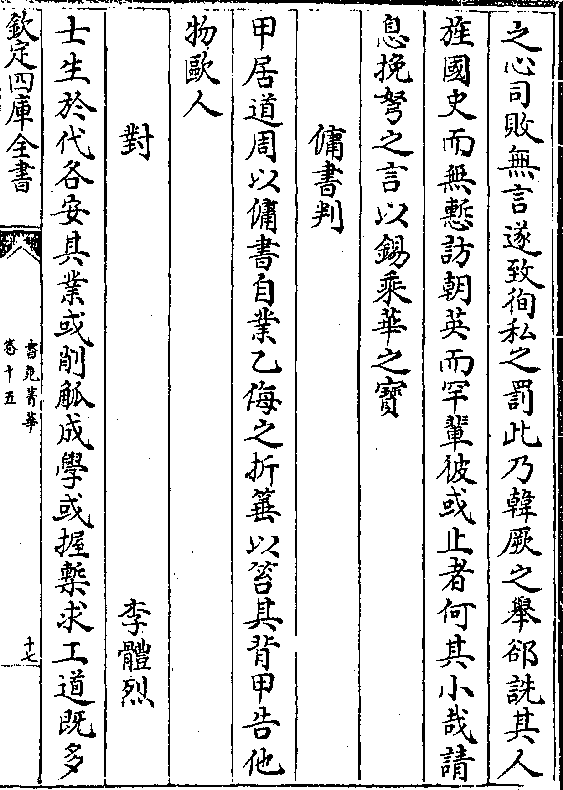 之心司敗無言遂致徇私之罰此乃韓厥之舉郤詵其人
旌國史而無慙訪朝英而罕輩彼或止者何其小哉請
息挽弩之言以錫乘華之寶
傭書判
甲居道周以傭書自業乙侮之折箠以笞其背甲告他
物歐人
對
李體烈
士生於代各安其業或削觚成學或握槧求工道既多
欽定四庫全書
書苑菁華
卷十五
十七